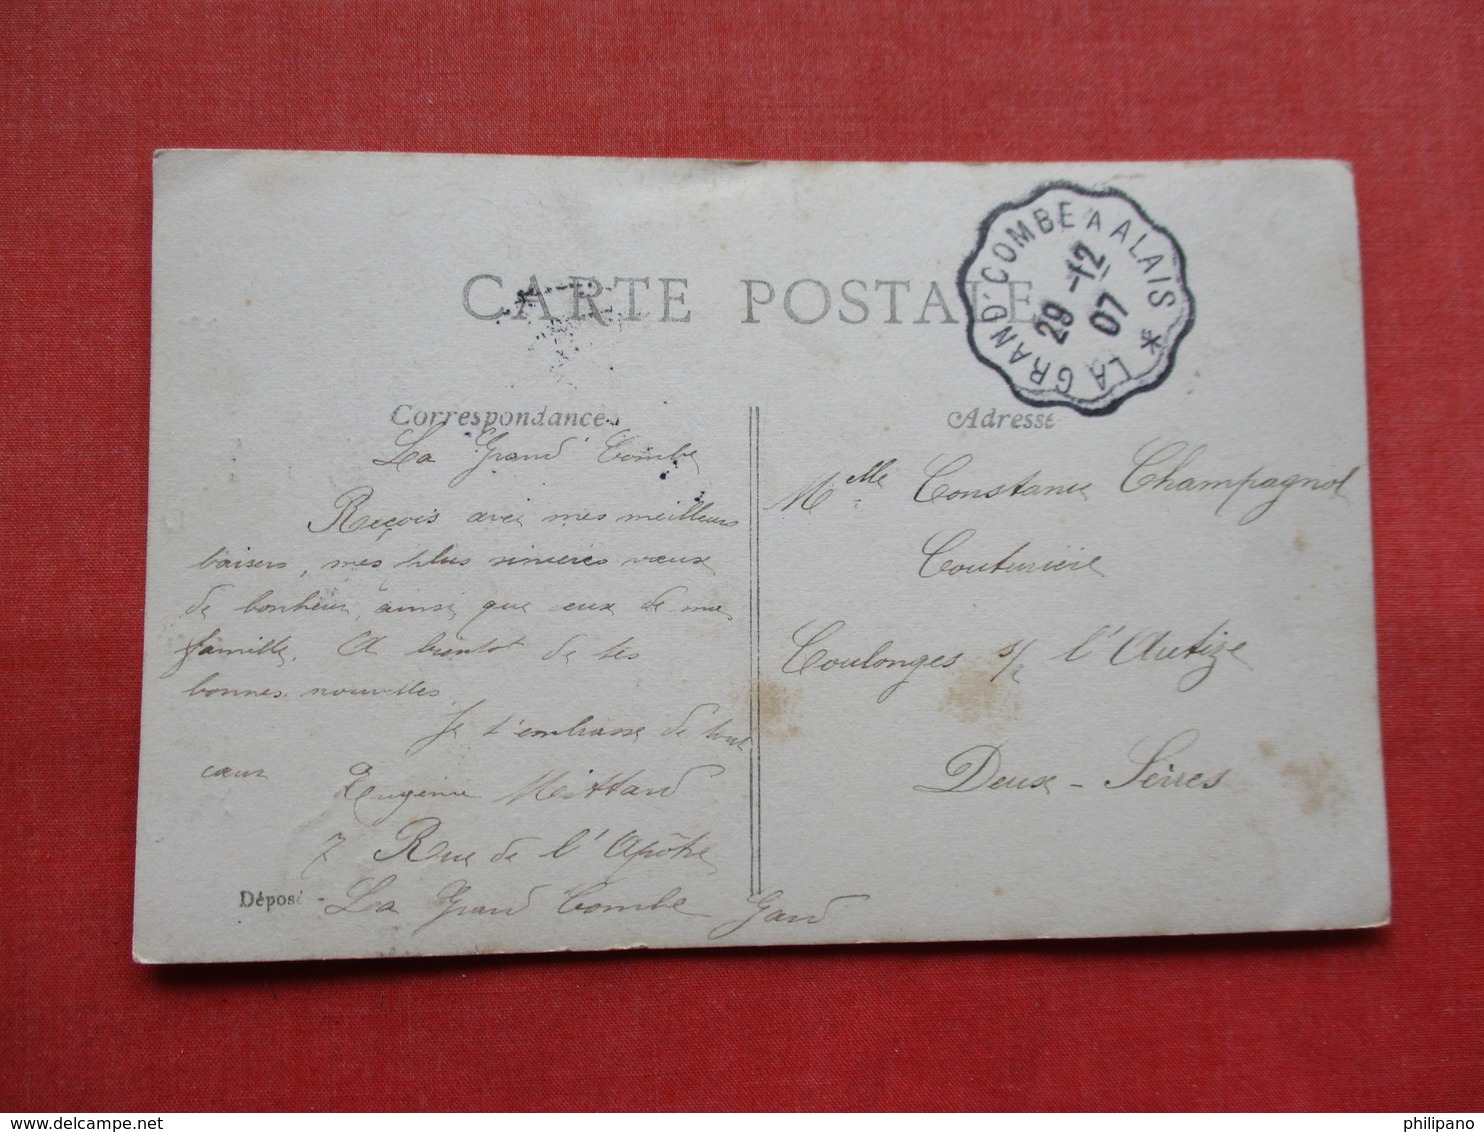 CARTE POSTALE
LA GRAND'COMBE A ALAIS *
29 -12
07
Correspondance
La Grand' Combe
Reçois avec mes meilleurs
baisers, mes plus sincères vœux
de bonheur, ainsi que ceux de ma
famille. A bientot de tes
bonnes nouvelles
Je t'embrasse de tout
cœur
Eugénie Mittard
7 Rue de l'Apôtre
La Grand Combe Gard
Déposé
Adresse
Melle Constance Champagnol
Couturière
Coulonges s/ l'Autize
Deux-Sèvres
www.delcampe.net
philipano